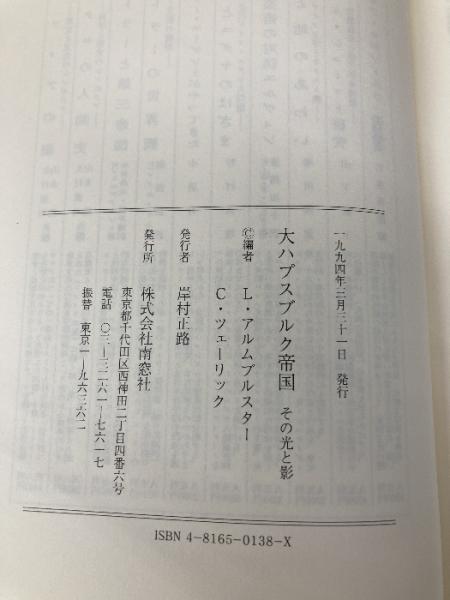 一九九四年三月三十一日 発行
大ハプスブルク帝国 その光と影
©編者 L・アルムブルスター
C・ツェーリック
発行者 岸村正路
発行所 株式会社南窓社
東京都千代田区西神田二丁目四番六号
電話 〇三―三二六一―七六一七
振替 東京一―九六三六二
ISBN 4-8165-0138-X